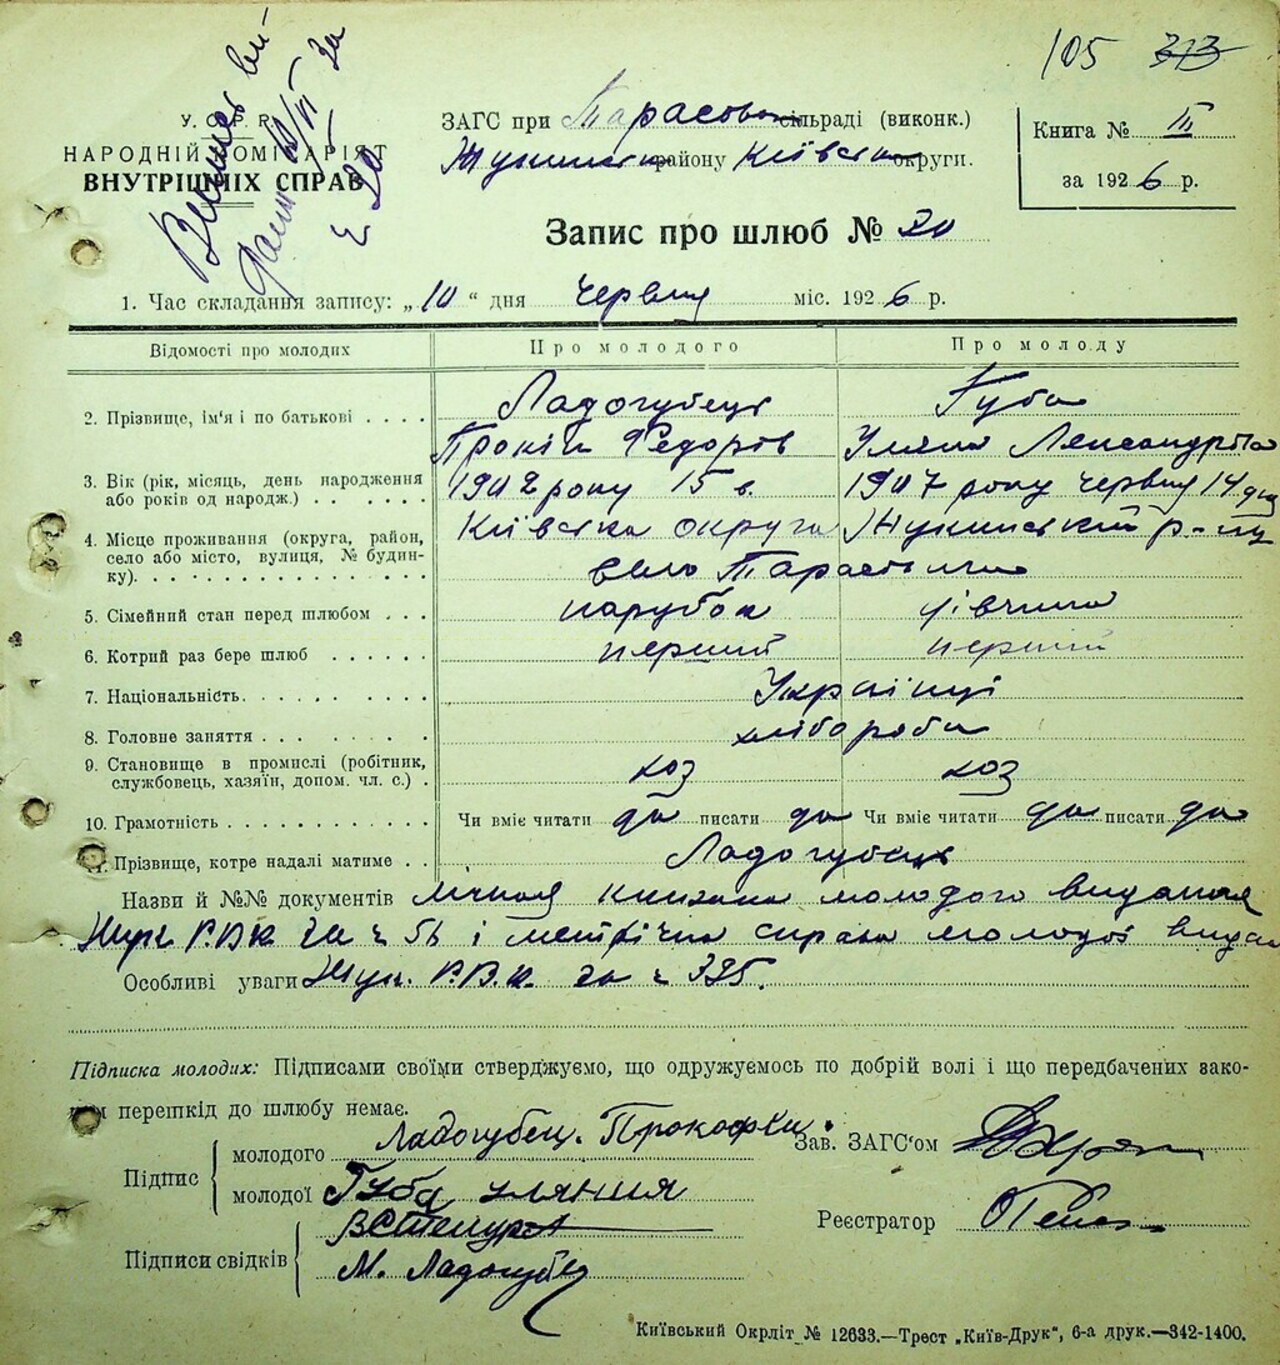 105 313
У. С. Р. Р.
НАРОДНІЙ КОМІСАРІЯТ
ВНУТРІШНІХ СПРАВ
ЗАГС при Тарасов сільраді (виконк.)
району Київськ округи.
Книга № III
за 1926 р.
Запис про шлюб № 20
1. Час складання запису: „10“ дня червня міс. 1926 р.
Відомості про молодих Про молодого Про молоду
2. Прізвище, ім'я і по батькові . . . . Ладогубець Губа
Прокіп Федорів Уляна Лександрівна
3. Вік (рік, місяць, день народження або років од народж.) . . . . . . . 1902 року 15 в. 1907 року червня 14 дня
4. Місце проживання (округа, район, село або місто, вулиця, № будинку). . . . . . . . . . . . . . . . Київська округа Жукинський р-ну
село Тарасовичи
5. Сімейний стан перед шлюбом . . . парубок дівчина
6. Котрий раз бере шлюб . . . . . . перший перший
7. Національність. . . . . . . . . . Українці
8. Головне заняття . . . . . . . . . хлібороби
9. Становище в промислі (робітник, службовець, хазяїн, допом. чл. с.) . хоз хоз
10. Грамотність . . . . . . . . . . . . Чи вміє читати да писати да Чи вміє читати да писати да
11. Прізвище, котре надалі матиме . . Ладогубець
Назви й №№ документів лічная книжка молодого виданая
Жук. Р.В.К за ч 56 і метрічна справа молодої видан
Особливі уваги Жук. Р.В.К. за ч 325.
Підписка молодих: Підписами своїми стверджуємо, що одружуємось по добрій волі і що передбачених зако-
ном перешкід до шлюбу немає.
Підпис молодого Ладогубец. Прокофи. Зав. ЗАГС'ом
молодої Губа уляния
Реєстратор
Підписи свідків
М. Ладогубец
Київський Окрліт № 12633.—Трест „Київ-Друк“, 6-а друк.—342-1400.